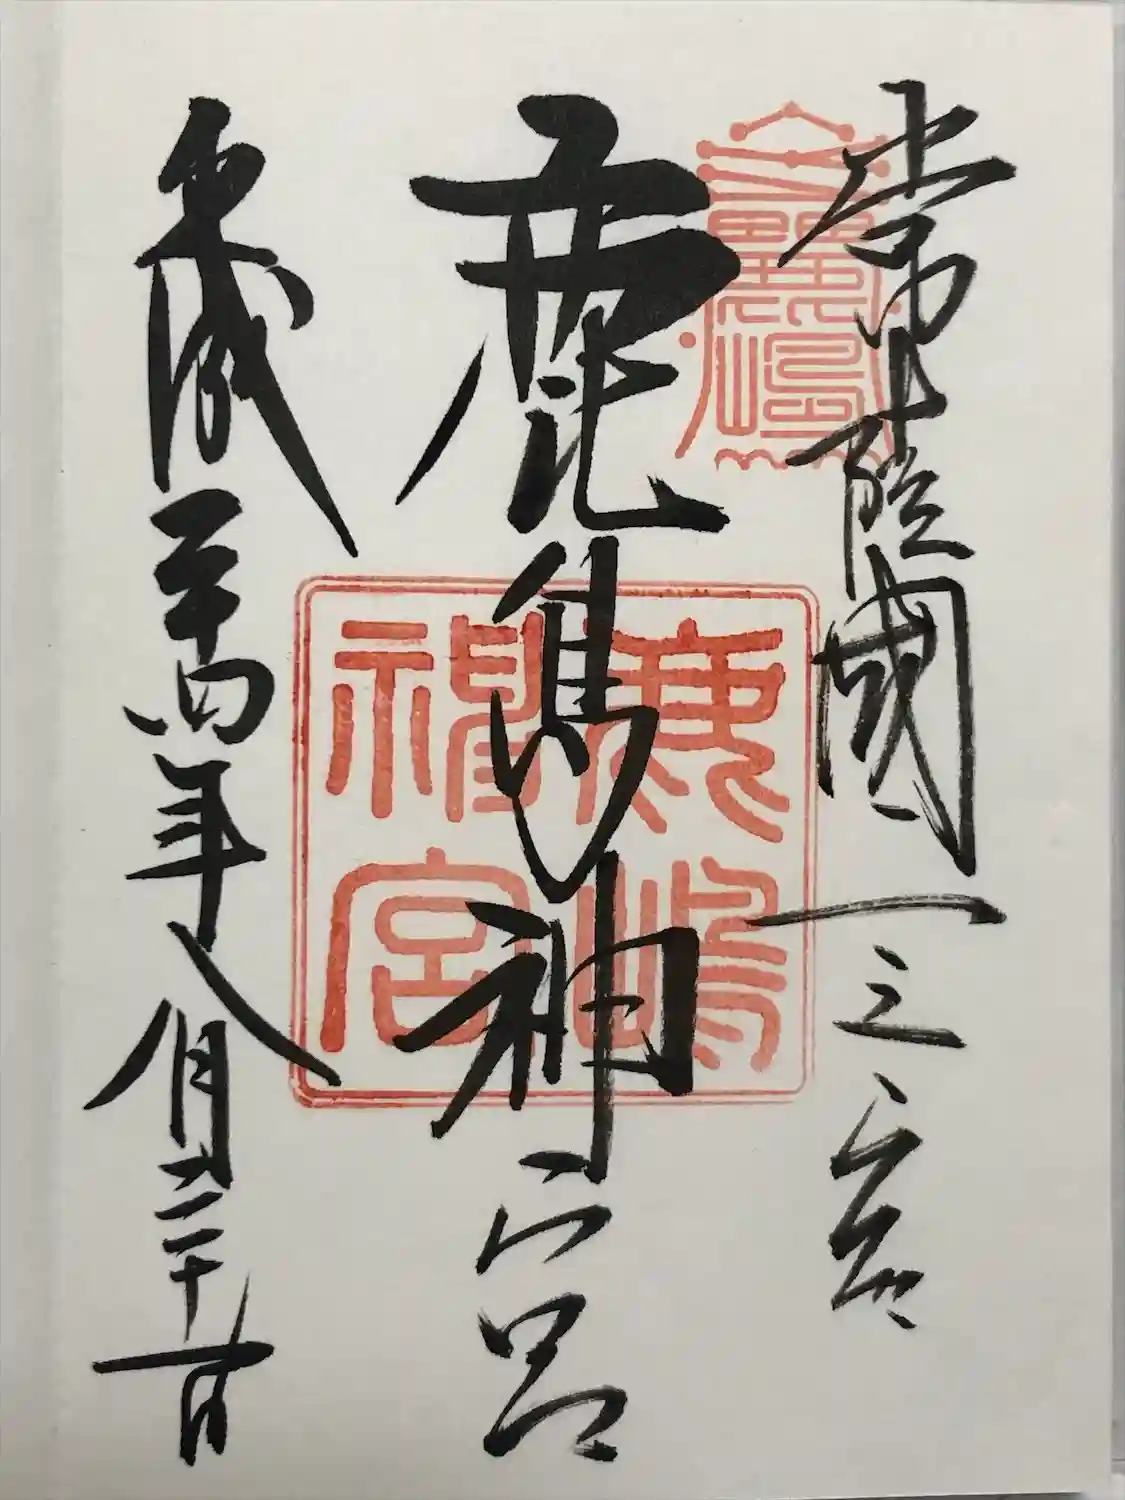 常陸國一之宮
鹿島神宮
平成二十四年八月二十一日
鹿嶋
神宮